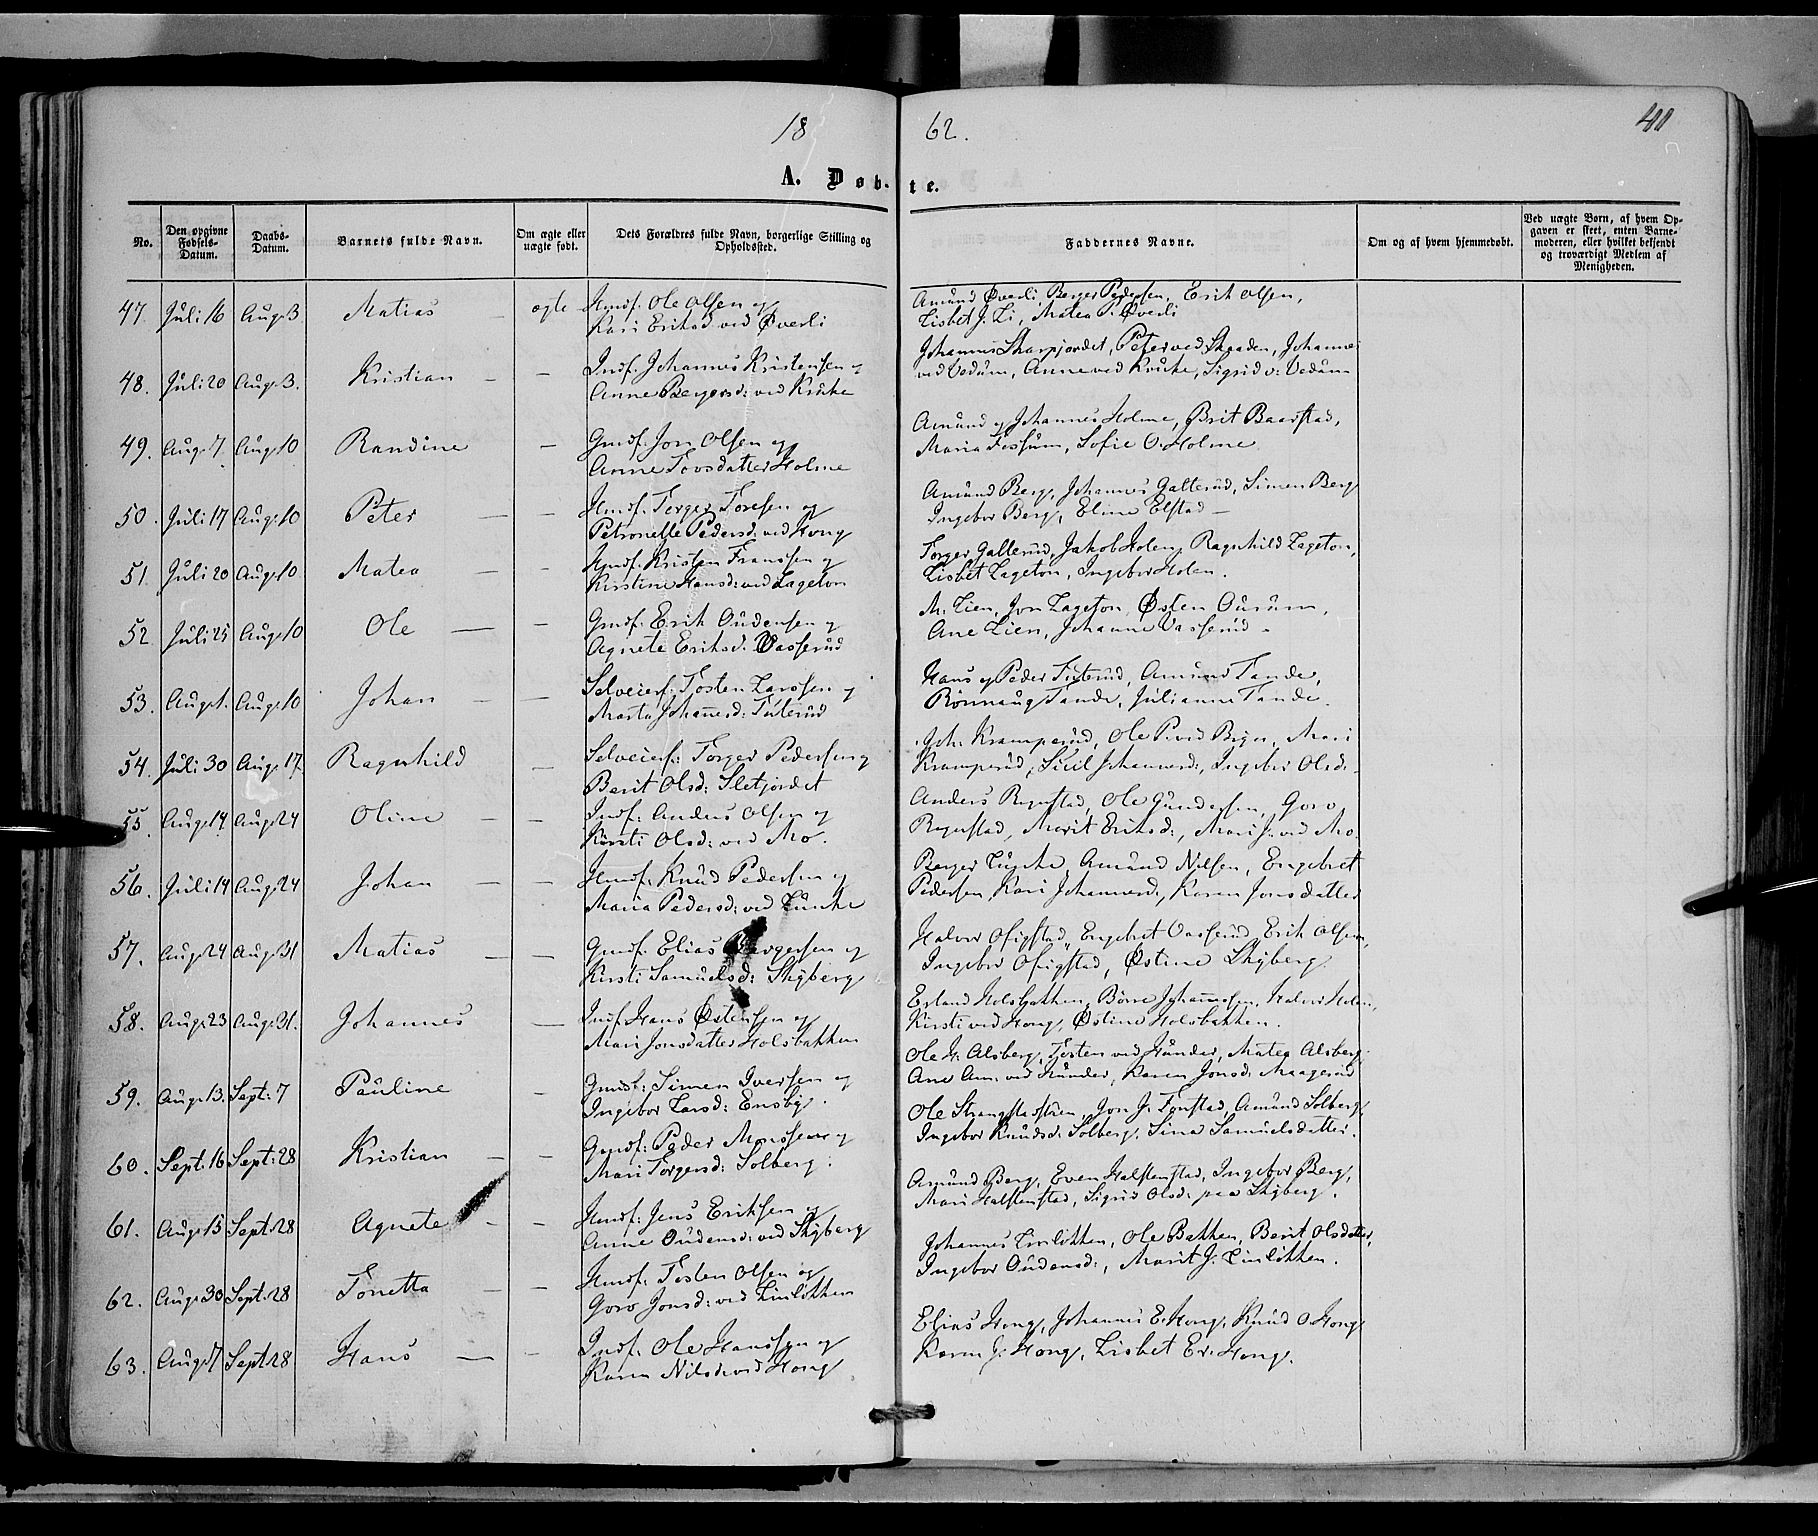 18
62.
A. Døb-
te.
No.
Den opgivne Fødsels-Datum.
Daabs-Datum.
Barnets fulde Navn.
Om ægte eller uægte født.
Dets Forældres fulde Navn, borgerlige Stilling og Opholdssted.
Faddernes Navne.
Om og af hvem hjemmedøbt.
Ved uægte Børn, af hvem Opgaven er skeet, enten Barnemoderen, eller hvilket bekjendt og troværdigt Medlem af Menigheden.
47. Juli 16 Aug: 3 Matias – ægte Hmdf: Ole Olsen og
Kari Eriksd ved Øverli
Amund Øverli, Berger Pedersen, Erik Olsen,
Lisbet J. Li, Matea Øverli
48. Juli 20 Aug: 3. Kristian – – Indf: Johannes Kristensen og
Anne Bergersd: ved
Johannes Skarpjordet, Peter ved Skaaden, Johannes
ved Vedum, Anne ved, Sigrid v: Vedum
49. Aug: 7 Aug: 10 Randine – Gmdf: Jon Olsen og
Anne Tovsdatter Holme
Amund og Johannes Holme, Brit Baarstad,
Maria Fossum, Sofie O. Holme
50. Juli 17 Aug: 10 Peter – – Hmdf: Torger Toresen og
Petronelle Pedersd: ved Hong
Amund Berg, Johannes Galterud, Simen Berg
Ingebor Berg, Eline Elstad –
51. Juli 20 Aug: 10 Matea – – Hmdf: Kristen Fransen og
Kirstine Hansd: ved Lageton
Torger Galterud, Jakob Holen, Ragnhild Lageton,
Lisbet Lageton, Ingebor Holen.
52. Juli 25 Aug: 10 Ole – – Gmdf: Erik Oudensen og
Agnete Eriksd: Vasserud
M. Lien, Jon Lageton, Østen Ourum,
Ane Lien, Johanne Vasserud –
53. Aug: 1. Aug: 10 Johan – – Selveierf: Tosten Larssen og
Marta Johannesd: Tuterud
Hans og Peder Tuterud, Amund Tande,
Rønnaug Tande, Julianne Tande.
54. Juli 30 Aug: 17. Ragnhild – Selveierf: Torger Pedersen og
Berit Olsd: Sletjordet
Joh: Kramperud, Ole P. ved Bryn, Mari
Kramperud, Johannesd:, Ingebor Olsd:
55. Aug: 14 Aug: 24 Oline – – Indf: Anders Olsen og
Kirsti Olsd: ved Mo.
Anders Rynstad, Ole Gundersen, Goro
Rynstad, Marit Eriksd:, Mari J: ved Mo.
56. Juli 14 Aug: 24 Johan – – Hmdf: Knud Pedersen og
Maria Pedersd: ved Lunke
Berger Lunke, Amund Nilsen, Engebret
Pedersen, Kari Johannesd:, Karen Jonsdatter
57. Aug: 24 Aug: 31 Matias – – Gmdf: Elias Bergersen og
Kirsti Samuelsd: Skyberg
Halvor Ofigstad, Engebret Vasserud, Erik Olsen,
Ingebor Ofigstad, Østine Skyberg.
58. Aug: 23 Aug: 31. Johannes – Indf: Hans Østensen og
Mari Jonsdatter Holsbakken
Erland Holsbakken, Børre Johannesen, Halvor Holen,
Kirsti ved Hong, Østine Holsbakken.
59. Aug: 13. Sept: 7 Pauline – Gmdf: Simen Iversen og
Ingebor Larsd: Ensby.
Ole H. Alsberg, Tosten ved Hunder, Matea Alsberg
Ane Am: ved Hunder, Karen Jonsd: Maagerud
60. Sept: 16 Sept: 28 Kristian – – Gmdf: Peder Monssen og
Mari Torgersd: Solberg.
Ole, Jon J. Fonstad, Amund Solberg,
Ingebor Knudsd: Solberg, Sina Samuelsdatter.
61. Aug: 15 Sept: 28 Agnete – – Hmdf: Jens Eriksen og
Anne Oudensd: ved Skyberg
Amund Berg, Even Halstenstad, Ingebor Berg,
Mari Halstenstad, Sigrid Olsd: paa Skyberg.
62. Aug: 30 Sept: 28 Tonetta – – Hmdf: Tosten Olsen og
Goro Jonsd: ved Linløkken
Johannes Linløkken, Ole Bakken, Berit Olsdatter,
Ingebor Oudensd:, Marit J. Linløkken.
63. Aug: 7 Sept: 28 Hans – – Indf: Ole Hanssen og
Karen Nilsd: ved Hong
Elias Hong, Johannes E. Hong, Knud O. Hong
Karen J: Hong, Lisbet Er: Hong.